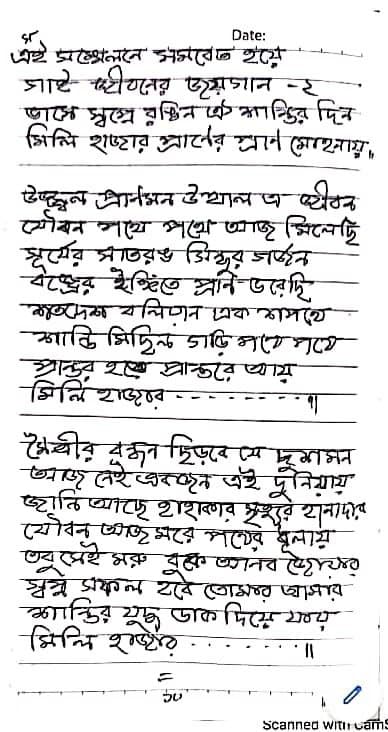 Date:
এই সম্মেলনে সমবেত হয়ে
গাই জীবনের জয়গান - ২
ভাসে স্বপ্নে রঙ্গিন ঐ শান্তির দিন
মিলি হাজার প্রাণের প্রাণ মোহনায়,
উজ্জ্বল প্রানমন উত্থাল এ জীবন
যৌবন পথে পথে আজ মিলেছি
সূর্যের সাতরঙ সিন্ধুর গর্জন
বজ্রের ইঙ্গিতে প্রাণ ভরেছি
শতদেশ বলিদান এক শপথে
শান্তি মিছিল গড়ি পথে পথে
প্রান্তর হতে প্রান্তরে আয়
মিলি হাজার - - - - - - - - - ॥
মৈত্রীর বন্ধন ছিড়বে যে দুশমন
আজ নেই একজন এই দুনিয়ায়
জানি আছে হাহাকার মৃত্যুর হানাদার
যৌবন আজ মরে পথের ধূলায়
তবু সেই মরু বুকে আনব জোয়ার
স্বপ্ন সফল হবে তোমার আমার
শান্তির যুদ্ধ ডাক দিয়ে যায়
মিলি হাজার - - - - - - - . ॥
=
১০
Scanned with CamS